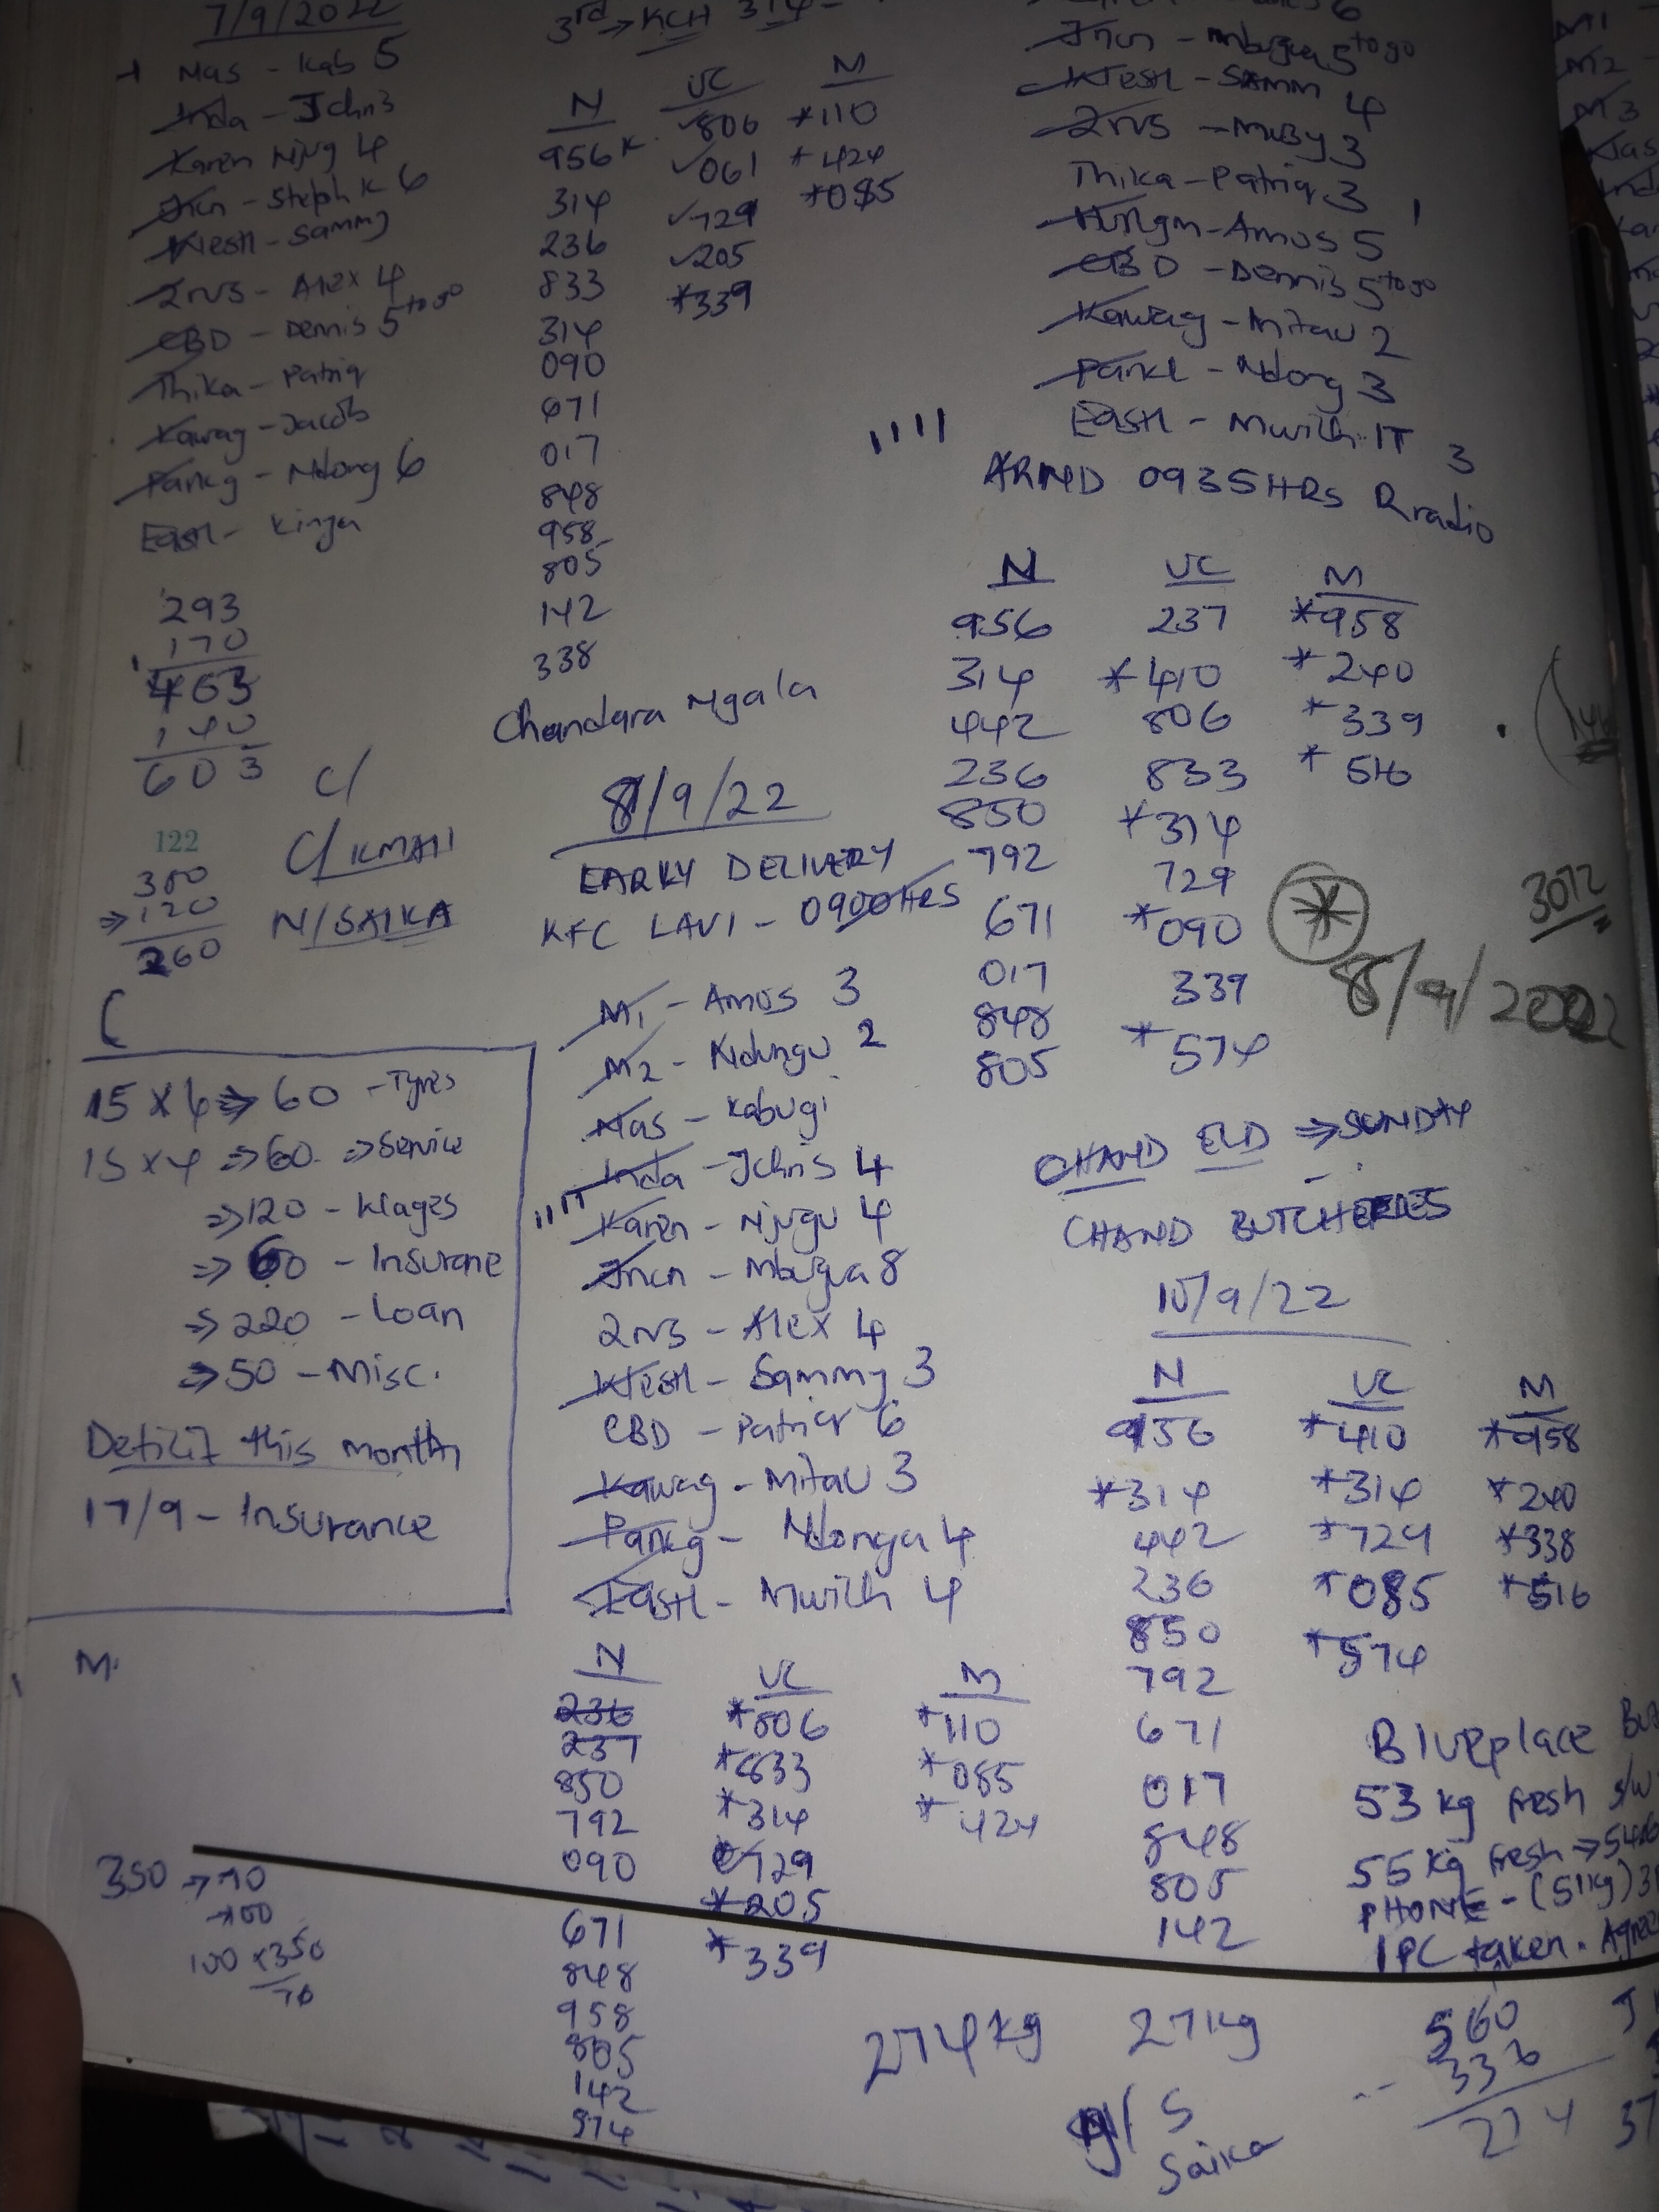 7/9/2022
Nas - Kab 5
Inda - John 3
Karen Njug 4
Jncn - Steph K 6
Westl - Sammy
2NB - Alex 4
CBD - Dennis 5 to go
Thika - Patriq
Kawag - Jacob
Pankg - Ndong 6
Eastl - Kinja
293
170
463
140
603
C/
122
C/KMATI
380
⇒ 120
260
N/SAIKA
15 x 4 ⇒ 60 - Tyres
15 x 4 ⇒ 60 ⇒ Service
⇒ 120 - Wages
⇒ 60 - Insurane
⇒ 220 - Loan
⇒ 50 - Misc.
Deficit this month
17/9 - Insurance
M.
350 → 70
100 x 350
70
3rd → KCH 314
N VC M
956 K ✓806 *110
314 ✓061 *424
236 ✓729 *085
833 ✓205
314 *339
090
671
017
848
958
805
142
338
Chandara Ngala
8/9/22
EARKY DELIVERY
KFC LAVI - 0900HRS
M1 - Amos 3
M2 - Ndungu 2
Nas - Kabugi
Inda - Johns 4
Karen - Njugu 4
Jncn - Mbugua 8
2NB - Alex 4
Westl - Sammy 3
CBD - Patriq 6
Kawag - Mitau 3
Pankg - Ndonga 4
Eastl - Mwith 4
N VC M
236 *806 *110
237 *833 *085
850 *314 *424
792 729
090 *205
671 *339
848
958
805
142
574
Jncn - Mbugua 5 to go
Westl - Samm 4
2NB - Muby 3
Thika - Patriq 3
Hurlgm - Amos 5
CBD - Dennis 5 to go
Kawag - Mitau 2
Pankl - Ndong 3
Eastl - Mwith IT 3
ARMD 0935HRS Rradio
N VC M
956 237 *958
314 *410 *240
442 806 *339
236 833 *516
850 *314
792 729
671 *090
017 339
848 *574
805
*
8/9/2022
CHAND ELD ⇒ SUNDAY
CHAND BUTCHERIES
10/9/22
N VC M
956 *410 *958
*314 *314 *240
442 *729 *338
236 *085 *516
850 *574
792
671
017
848
805
142
Blueplace
53 kg fresh s/w
55 kg fresh ⇒
PHONE - (51kg)
1PC taken.
274kg 27kg
N/S
Saika
560
336
274